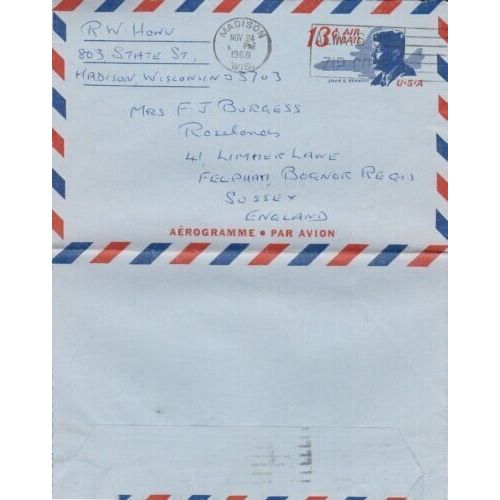 R.W HOWN
803 STATE ST.,
MADISON, WISCONSIN 53703
MADISON
NOV 24
PM
1968
WIS.
13¢ AIR MAIL
ZIP CO
JOHN F. KENNEDY
U·S·A
MRS F. J BURGESS
Roselands
41, LIMMER LANE
FELPHAM, BOGNOR REGIS
SUSSEX
ENGLAND
AÉROGRAMME • PAR AVION